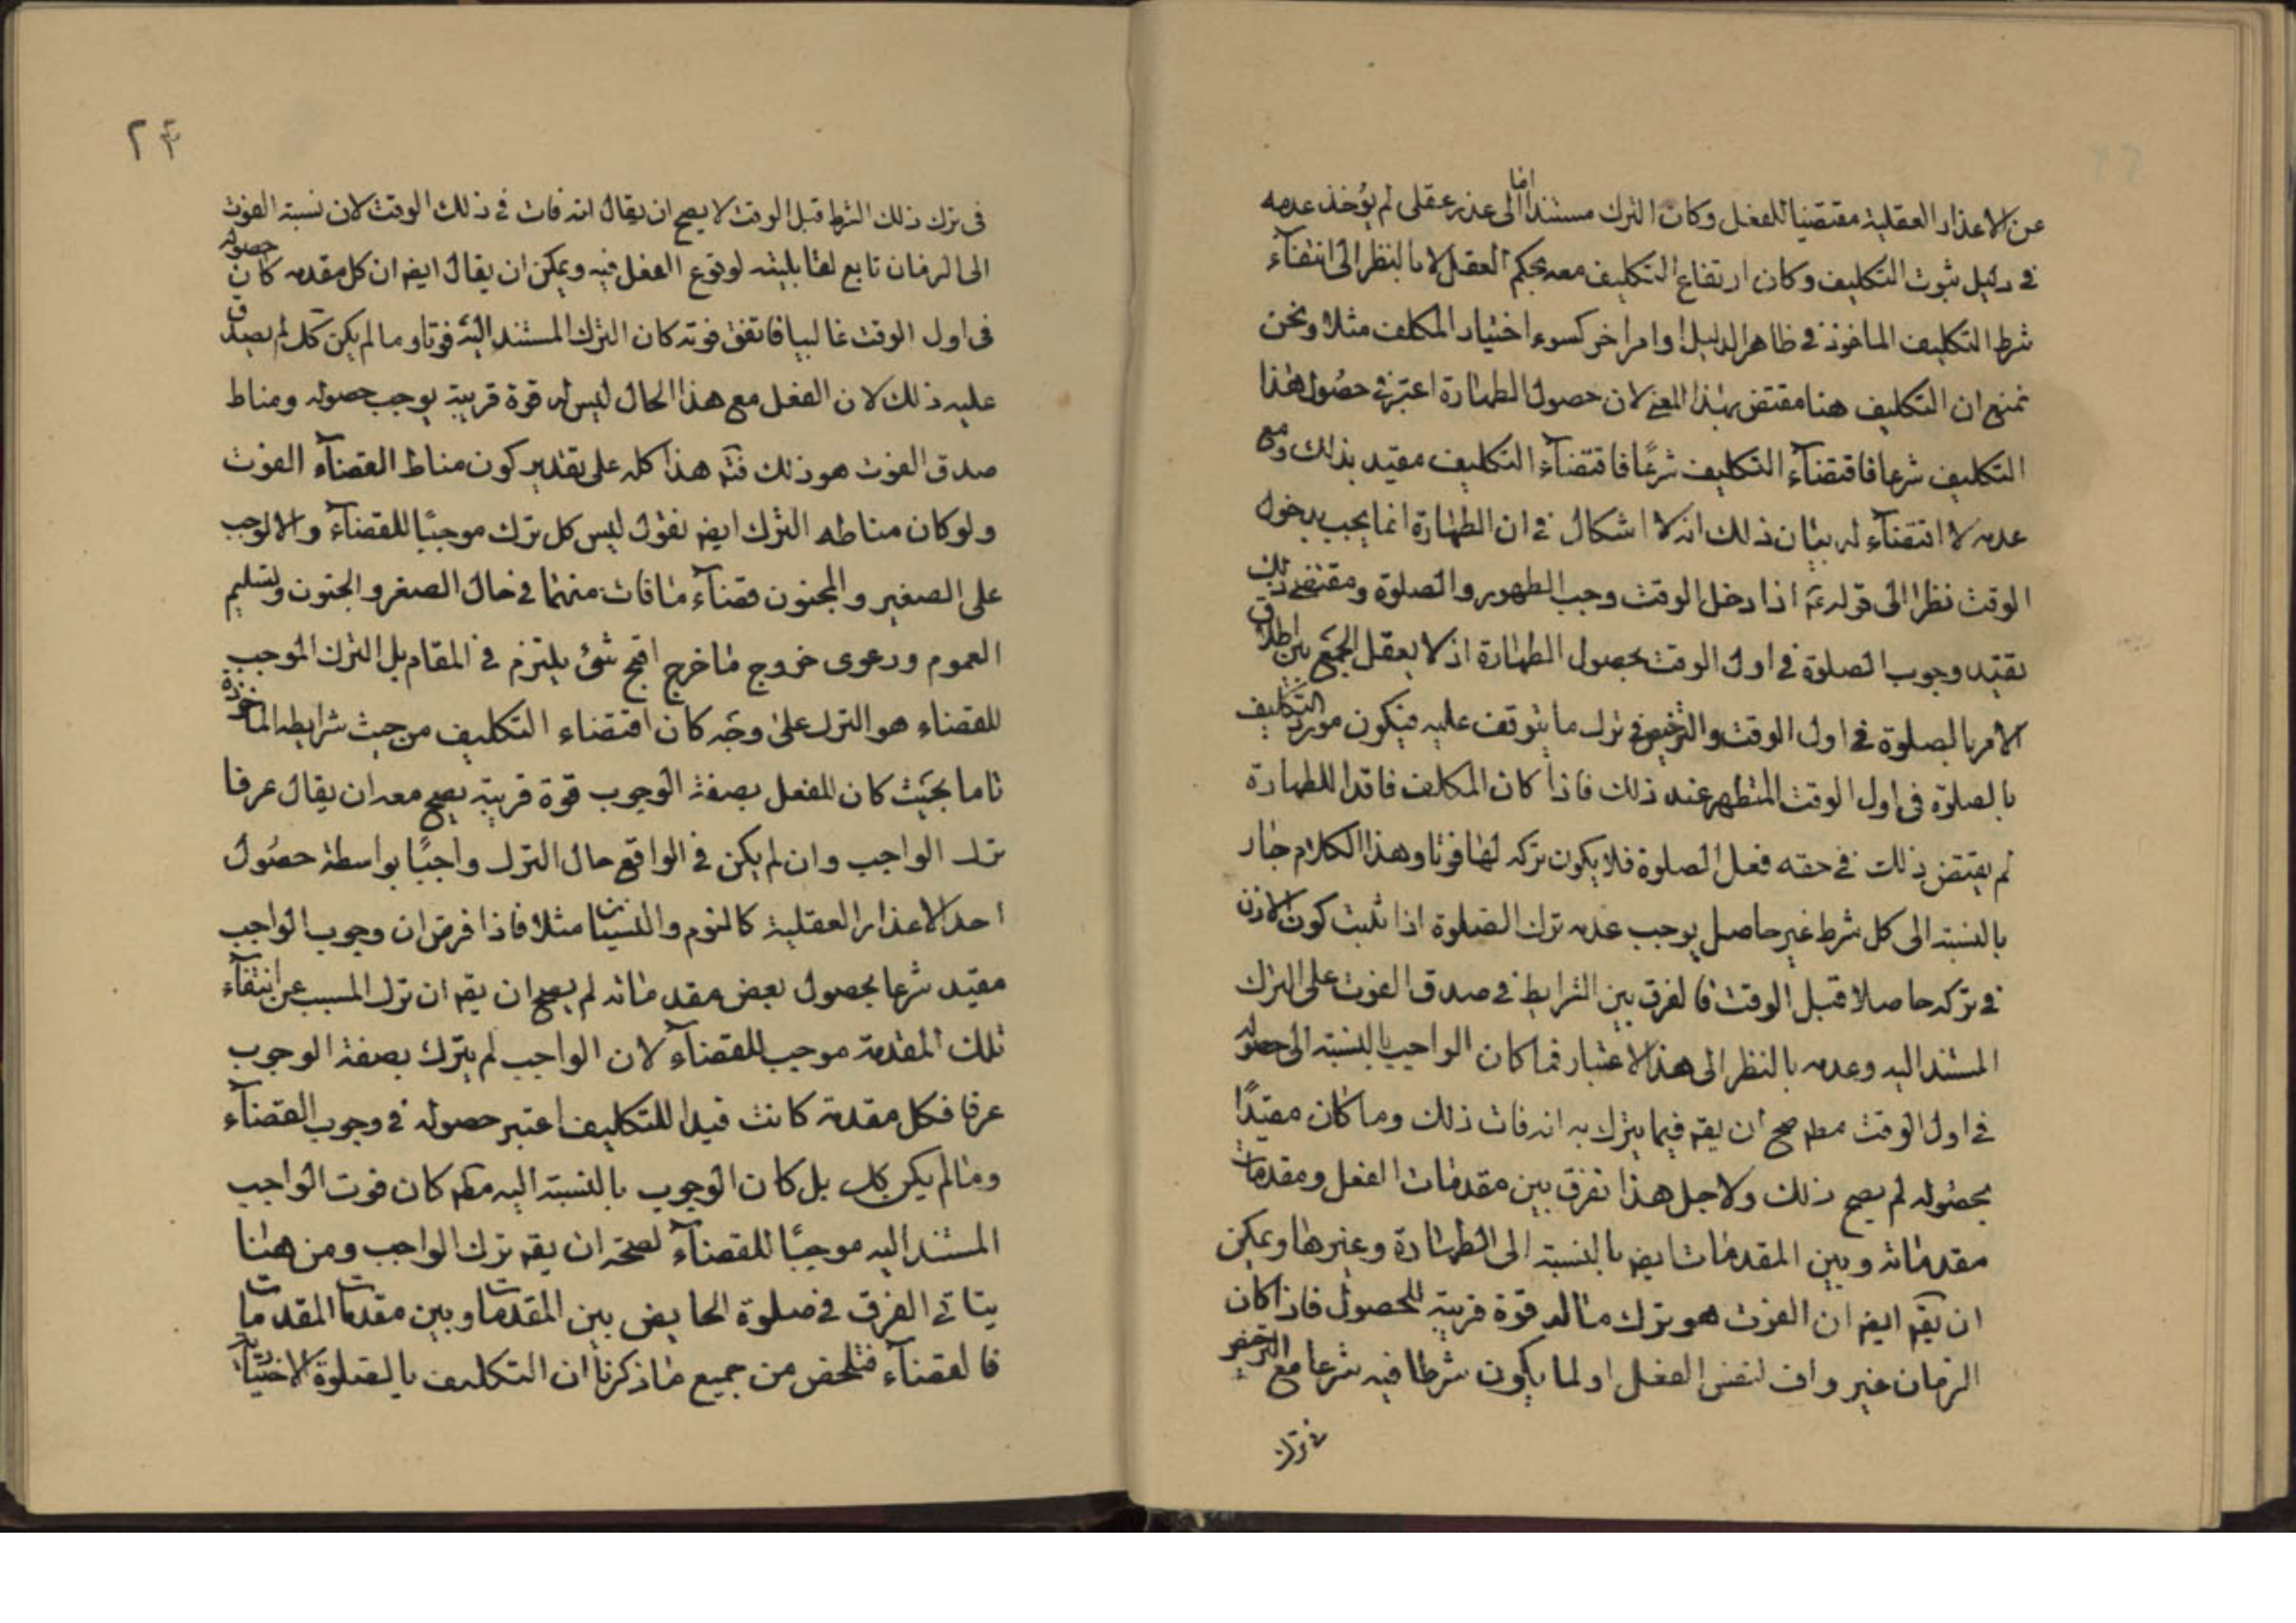 عن الاعذار العقلية مقتضيا للفعل وكان الترك مستندا اما الى عذر عقلى لم يؤخذ عدمه
فى دليل ثبوت التكليف وكان ارتفاع التكليف معه بحكم العقل لا بالنظر الى انتفاء
شرط التكليف الماخوذ فى ظاهر الدليل او امر اخر كسوء اختيار المكلف مثلا ونحن
نمنع ان التكليف هنا مقتض بهذا المعنى لان حصول الطهارة اعتبر فى حصول هذا
التكليف شرعا فاقتضاء التكليف شرعًا فاقتضاء التكليف مقيد بذلك ومع
عدمه لا اقتضاء له بيان ذلك انه لا اشكال فى ان الطهارة انما يجب بدخول
الوقت نظرا الى قوله عم اذا دخل الوقت وجب الطهور والصلوة ومقتضى ذلك
تقييد وجوب الصلوة فى اول الوقت بحصول الطهارة اذ لا يعقل الجمع بين اطلاق
الامر بالصلوة فى اول الوقت والترخيص فى ترك ما يتوقف عليه فيكون مورد التكليف
بالصلوة فى اول الوقت المتطهر عند ذلك فاذا كان المكلف فاقدا للطهارة
لم يقتض ذلك فى حقه فعل الصلوة فلا يكون تركه لها فوتا وهذا الكلام جار
بالنسبة الى كل شرط غير حاصل يوجب عدمه ترك الصلوة اذا ثبت كون الاذن
فى تركه حاصلا قبل الوقت فالفرق بين الشرايط فى صدق الفوت على الترك
المستند اليه وعدمه بالنظر الى هذا الاعتبار فما كان الواجب بالنسبة الى حصوله
فى اول الوقت مطم صح ان يقم فيما يترك به انه فات ذلك وما كان مقيدًا
بحصوله لم يصح ذلك ولاجل هذا نفرق بين مقدمات الفعل ومقدمات
مقدماته وبين المقدمات ايضم بالنسبة الى الطهارة وغيرها ويمكن
ان يقم ايضم ان الفوت هو ترك ما له قوة قريبة للحصول فاذا كان
الزمان غير واف لنفس الفعل او لما يكون شرطا فيه شرعا مع الترخيص
فى ترك
٢٤
فى ترك ذلك الشرط قبل الوقت لا يصح ان يقال انه فات فى ذلك الوقت لان نسبة الفوت
الى الزمان تابع لقابليته لوقوع الفعل فيه ويمكن ان يقال ايضم ان كل مقدمه كان حصوله
فى اول الوقت غالبيا فاتفق فوته كان الترك المستند اليه فوتا وما لم يكن كك لم يصدق
عليه ذلك لان الفعل مع هذا الحال ليس له قوة قريبة يوجب حصوله ومناط
صدق الفوت هو ذلك فتم هذا كله على تقدير كون مناط القضاء الفوت
ولو كان مناطه الترك ايضم نقول ليس كل ترك موجبًا للقضاء والا لوجب
على الصغير والمجنون قضاء ما فات منهما فى حال الصغر والجنون وتسليم
العموم ودعوى خروج ما خرج اقبح شئ يلتزم فى المقام بل الترك الموجب
للقضاء هو الترك على وجه كان اقتضاء التكليف من حيث شرايطه الماخوذة
تاما بحيث كان للفعل بصفة الوجوب قوة قريبة يصح معه ان يقال عرفا
ترك الواجب وان لم يكن فى الواقع حال الترك واجبًا بواسطة حصول
احد الاعذار العقلية كالنوم والنسيان مثلا فاذا فرض ان وجوب الواجب
مقيد شرعا بحصول بعض مقدماته لم يصح ان يقم ان ترك المسبب عن انتفاء
تلك المقدمة موجب للقضاء لان الواجب لم يترك بصفة الوجوب
عرفا فكل مقدمة كانت قيدا للتكليف اعتبر حصوله فى وجوب القضاء
وما لم يكن كك بل كان الوجوب بالنسبة اليه مطم كان فوت الواجب
المستند اليه موجبًا للقضاء لصحة ان يقم ترك الواجب ومن هنا
يتاتى الفرق فى صلوة الحايض بين المقدمات وبين مقدمات المقدمات
فالقضاء فتلخص من جميع ما ذكرنا ان التكليف بالصلوة الاختيارية